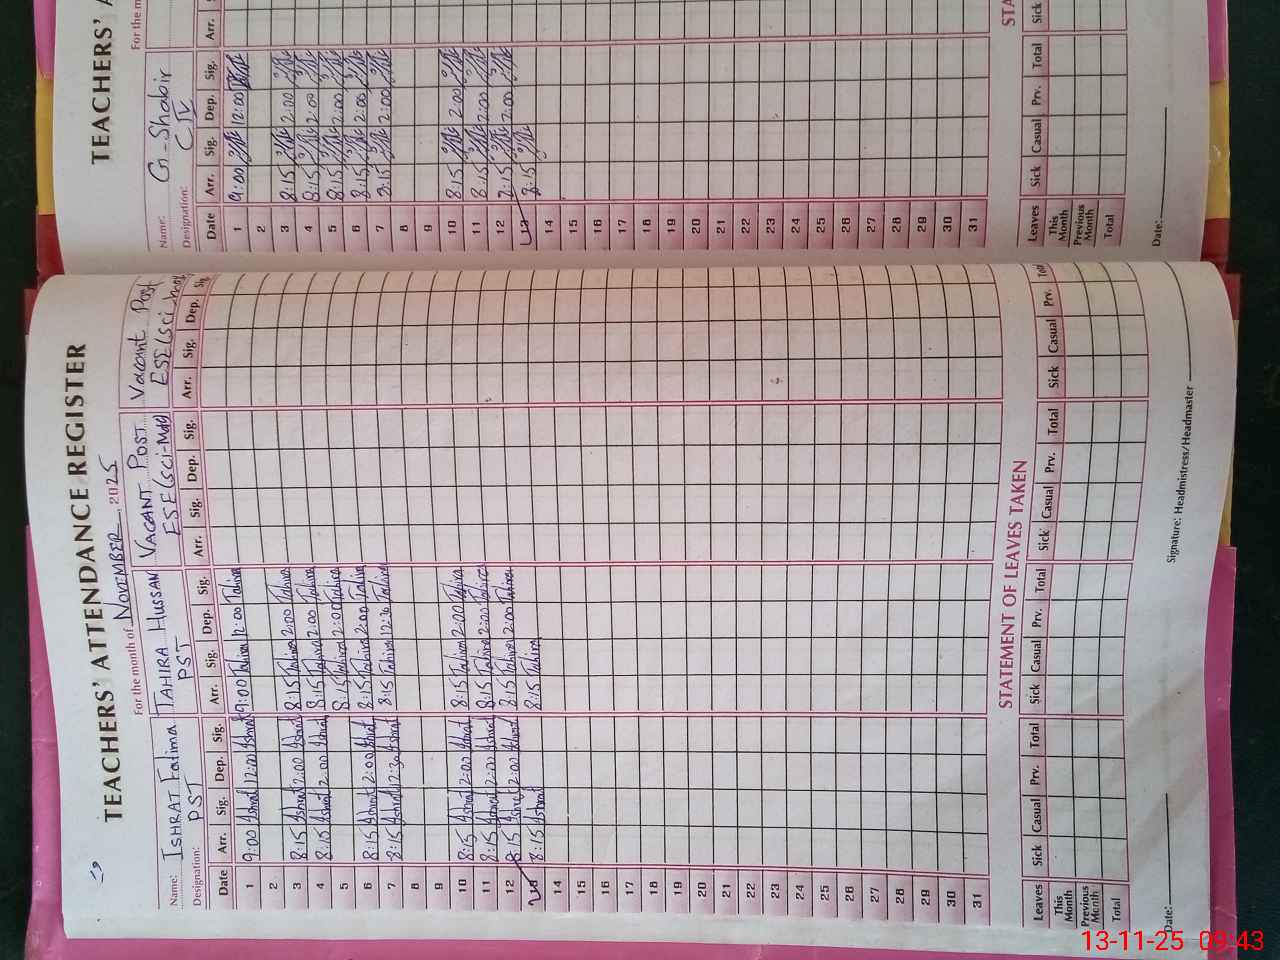 TEACHERS' ATTENDANCE REGISTER
For the month of NOVEMBER, 2025
Name: ISHRAT Fatima TAHIRA HUSSAN VACANT POST Vacant Post
Designation: PST PST ESE(Sci-Math) ESE(Sci-Math)
Date Arr. Sig. Dep. Sig. Arr. Sig. Dep. Sig. Arr. Sig. Dep. Sig. Arr. Sig. Dep. Sig.
1 9:00 Ishrat 12:00 Ishrat 9:00 Tahira 12:00 Tahira
2
3 8:15 Ishrat 2:00 Ishrat 8:15 Tahira 2:00 Tahira
4 8:15 Ishrat 2:00 Ishrat 8:15 Tahira 2:00 Tahira
5 8:15 Tahira 2:00 Tahira
6 8:15 Ishrat 2:00 Ishrat 8:15 Tahira 2:00 Tahira
7 8:15 Ishrat 12:30 Ishrat 8:15 Tahira 12:30 Tahira
8
9
10 8:15 Ishrat 2:00 Ishrat 8:15 Tahira 2:00 Tahira
11 8:15 Ishrat 2:00 Ishrat 8:15 Tahira 2:00 Tahira
12 8:15 Ishrat 2:00 Ishrat 8:15 Tahira 2:00 Tahira
8:15 Ishrat 8:15 Tahira
14
15
16
17
18
19
20
21
22
23
24
25
26
27
28
29
30
31
STATEMENT OF LEAVES TAKEN
Leaves Sick Casual Prv. Total Sick Casual Prv. Total Sick Casual Prv. Total Sick Casual Prv. Total
This Month
Previous Month
Total
Date: Signature: Headmistress/Headmaster
TEACHERS' A
For the m
Name: G-Shabir
Designation: C IV
Date Arr. Sig. Dep. Sig. Arr.
1 9:00 12:00
2
3 8:15 2:00
4 8:15 2:00
5 8:15 2:00
6 8:15 2:00
7 8:15 2:00
8
9
10 8:15 2:00
11 8:15 2:00
12 8:15 2:00
8:15
14
15
16
17
18
19
20
21
22
23
24
25
26
27
28
29
30
31
STA
Leaves Sick Casual Prv. Total Sick
This Month
Previous Month
Total
Date:
13-11-25 09:43